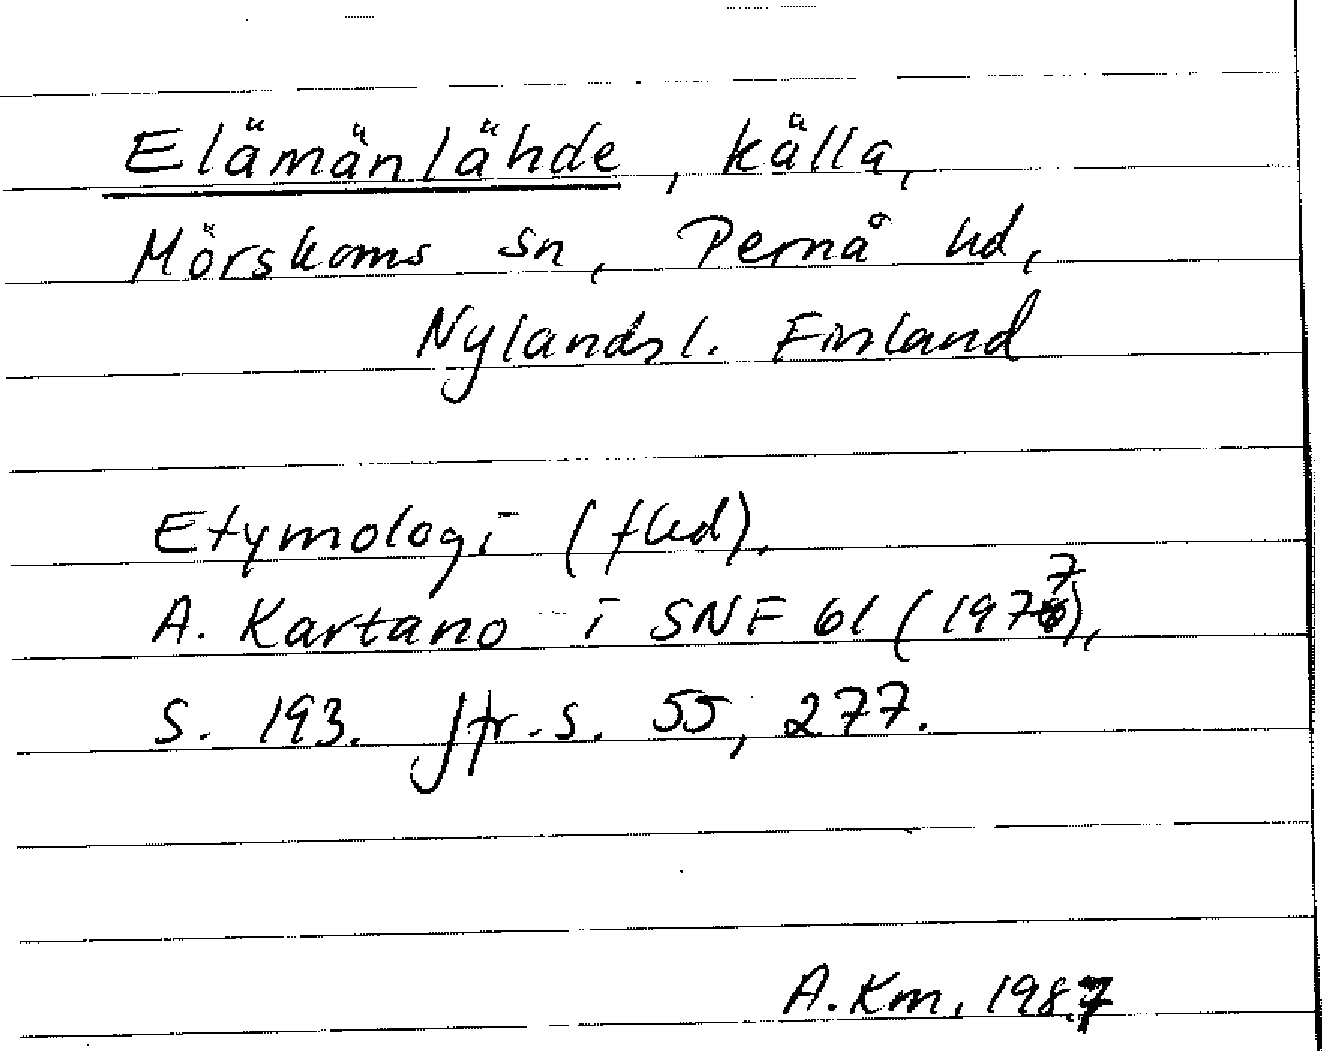 Elämänlähde, källa,
Mörskoms sn, Pernå hd,
Nylands l. Finland
Etymologi (flhd).
A. Kartano i SNF 61 (1977),
S. 193. Jfr. s. 55, 277.
A. Km. 1987